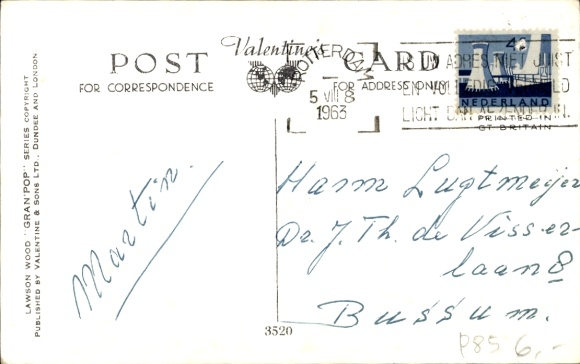 LAWSON WOOD "GRAN'POP" SERIES COPYRIGHT
PUBLISHED BY VALENTINE & SONS LTD., DUNDEE AND LONDON
Valentine's
POST CARD
FOR CORRESPONDENCE
FOR ADDRESS ONLY
ROTTERDAM
5 VIII
1963
ADRES NIET JUIST
EN
LICHT DAN AFZENDER IN.
4
NEDERLAND
PRINTED IN
GT BRITAIN
Martin.
Harm Lugtmeijer
Dr. J. Th. de Visser-
laan 8
Bussum.
3520
P85 6,-